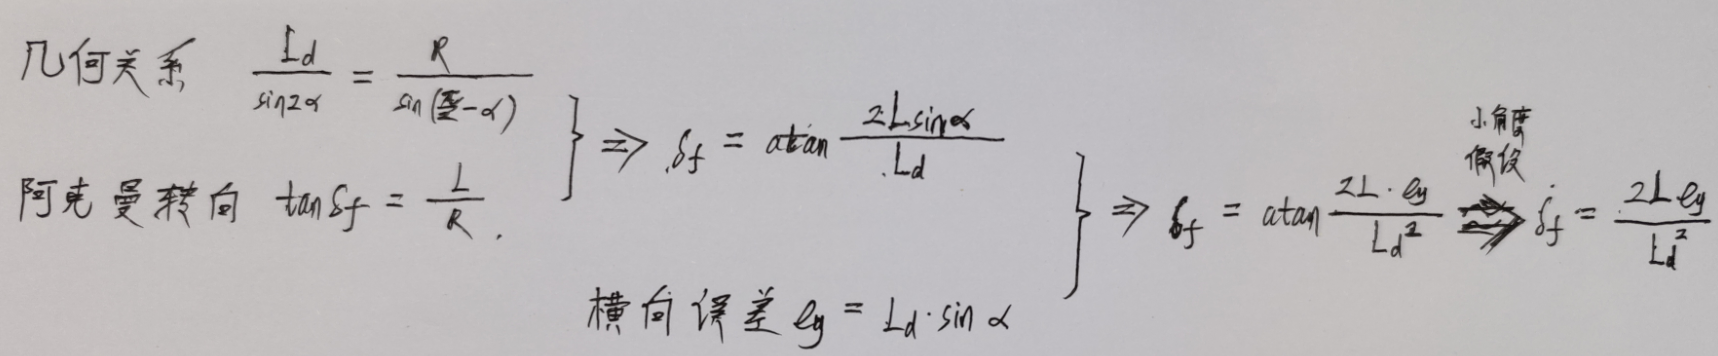 几何关系 Ld/sin2α = R/sin(π/2-α)
阿克曼转向 tanδf = L/R.
⇒ δf = atan 2Lsinα/Ld
横向误差 ey = Ld·sinα
⇒ δf = atan 2L·ey/Ld²
小角度
假设
⇒ δf = 2Ley/Ld²